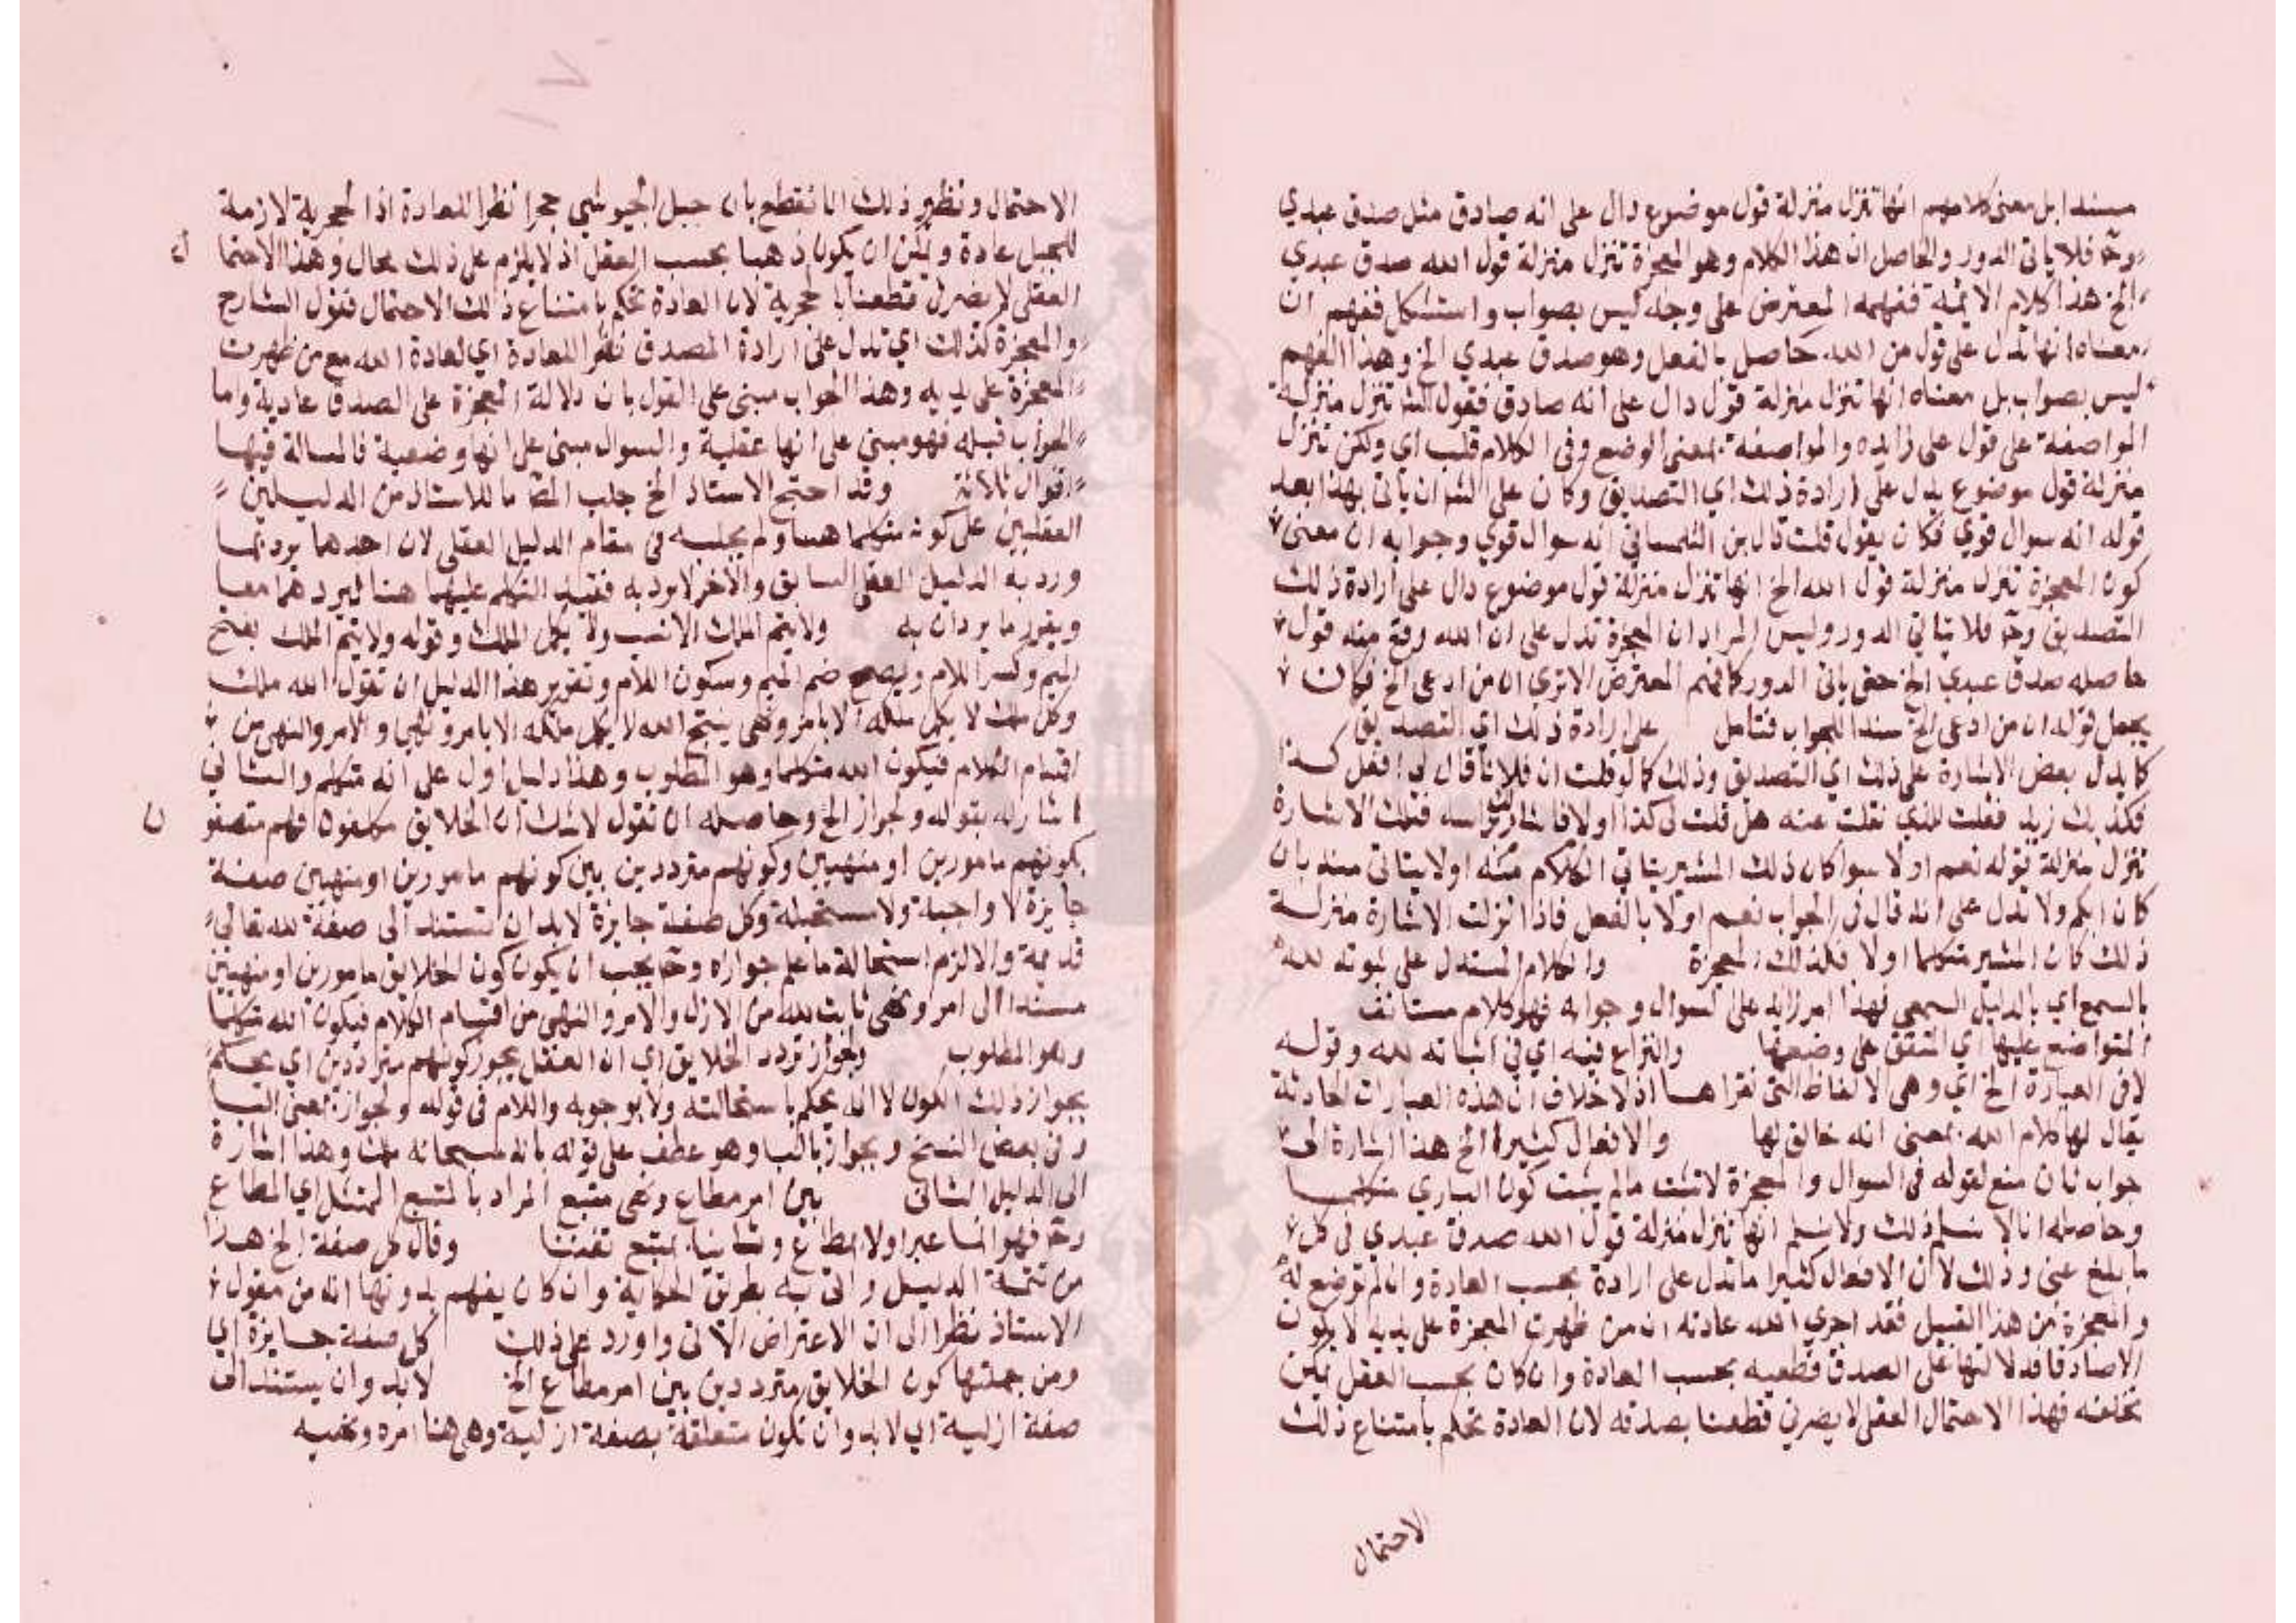 مسندا بل معنى كلامهم انها تنزل منزلة قول موضوع دال على انه صادق مثل صدق عبدي
وح فلا ياتى الدور والحاصل ان هذا الكلام وهو المعجزة تنزل منزلة قول الله صدق عبدي
الخ هذا كلام الائمة ففهمه المعترض على وجه ليس بصواب واستشكل ففهم ان
معناه انها تدل على قول من الله حاصل بالفعل وهو صدق عبدي الخ وهذا الفهم
ليس بصواب بل معناه انها تنزل منزلة قول دال على انه صادق فقول الش تنزل منزلة
المواضعة على قول على زايده والمواضعة بمعنى الوضع وفى الكلام قلب اي ولكن تنزل
منزلة قول موضوع يدل على ارادة ذلك اي التصديق وكان على الش ان ياتى بهذا بعد
قوله انه سوال قوي فكان يقول قلت قال ابن التلمسانى انه سوال قوي وجوابه ان معنى
كون المعجزة تنزل منزلة قول الله الخ انها تنزل منزلة قول موضوع دال على ارادة ذلك
التصديق وح فلا يتاتى الدور وليس المراد ان المعجزة تدل على ان الله وقع منه قول
حاصله صدق عبدي الخ حتى ياتى الدور كما فهم المعترض الا ترى ان من ادعى الخ فكان
يجعل قوله ان من ادعى الخ سندا للجواب فتامل على ارادة ذلك اي التصديق
كما يدل بعض الاشارة على ذلك اي التصديق وذلك كما لو قلت ان فلانا قال لى افعل كذا
فكذبك زيد فقلت للذي نقلت عنه هل قلت لى كذا اولا فاشار لك براسه فتلك الاشارة
تنزل منزلة قوله نعم اولا سوا كان ذلك المشير يتاتى الكلام منه اولا يتاتى منه بان
كان ابكم ولا تدل على انه قال فى الجواب نعم اولا بالفعل فاذا نزلت الاشارة منزلة
ذلك كان المشير متكلما اولا فكذلك المعجزة والكلام المستدل على ثبوته لله
بالسمع اي بالدليل السمعى فهذا امر زايد على السوال وجوابه فهو كلام مستانف
المتواضع عليها اي المتفق على وضعها والنزاع فيه اي فى اثباته لله وقوله
لا فى العبارة الخ اي وهى الالفاظ التى نقراها اذ لا خلاف ان هذه العبارات الحادثة
يقال لها كلام الله بمعنى انه خالق لها والافعال كثيرا الخ هذا اشارة الى
جواب ثان منع لقوله فى السوال والمعجزة لا تثبت مالم يثبت كون الباري متكلما
وحاصله انا لا نسلم ذلك ولا نسلم انها تنزل منزلة قول الله صدق عبدي فى كل
ما يبلغ عنى وذلك لان الافعال كثيرا ما تدل على ارادة بحسب العادة وان لم توضع له
والمعجزة من هذا القبيل فقد اجري الله عادته ان من ظهرت المعجزة على يديه لا يكون
الا صادقا فدلالتها على الصدق قطعية بحسب العادة وان كان بحسب العقل يمكن
تخلفه فهذا الاحتمال العقلى لا يضر فى قطعنا بصدقه لان العادة تحكم بامتناع ذلك
الاحتمال
الاحتمال ونظير ذلك انا نقطع بان جبل الجيوشى حجرا نظرا للعادة اذ الحجرية لازمة
للجبل عادة ويمكن ان يكون ذهبا بحسب العقل اذ لا يلزم على ذلك محال وهذا الاحتمال
العقلى لا يضر فى قطعنا بالحجرية لان العادة تحكم بامتناع ذلك الاحتمال فقول الشارح
والمعجزة كذلك اي تدل على ارادة المصدق نظرا للعادة اي لعادة الله مع من ظهرت
المعجزة على يديه وهذا الجواب مبنى على القول بان دلالة المعجزة على الصدق عادية وما
الجواب قبله فهو مبنى على انها عقلية والسوال مبنى على انها وضعية فالمسالة فيها
اقوال ثلاثة وقد احتج الاستاذ الخ جلب المص ما للاستاذ من الدليلين
العقليين على كونه متكلما هنا ولم يجلبه فى مقام الدليل العقلى لان احدهما يرد بما
ورد به الدليل العقلى السابق والاخر لا يرد به فقيد التكلم عليهما هنا ليردهما معا
ويقرر ما يردان به ولا يتم الملك الانسب ولا يكمل الملك وقوله ولا يتم الملك بفتح
الميم وكسر اللام ويصح ضم الميم وسكون اللام وتقرير هذا الدليل ان تقول الله ملك
وكل ملك لا يكمل ملكه الا بامر ونهى ينتج الله لا يكمل ملكه الا بامر ونهى والامر والنهى من
اقسام الكلام فيكون الله متكلما وهو المطلوب وهذا دليل اول على انه متكلم والثانى
اشار له بقوله ولجواز الخ وحاصله ان تقول لاشك ان الخلايق مكلفون فهم متصفون
بكونهم مامورين او منهيين وكونهم مترددين بين كونهم مامورين او منهيين صفة
جايزة لا واجبة ولا مستحيلة وكل صفة جايزة لابد ان تستند الى صفة لله تعالى
قديمة والا لزم استحالة ما علم جوازه وح يجب ان يكون كون الخلايق مامورين او منهيين
مسندا الى امر ونهى ثابت لله من الازل والامر والنهى من اقسام الكلام فيكون الله متكلما
وهو المطلوب ولجواز تردد الخلايق اي ان العقل يجوز كونهم مترددين اي يحكم
بجواز ذلك الكون لا انه يحكم باستحالته ولا بوجوبه واللام فى قوله ولجواز بمعنى البا
وفى بعض النسخ وبجواز بالبا وهو عطف على قوله بانه سبحانه ملك وهذا اشارة
الى الدليل الثانى بين امر مطاع ونهى متبع المراد بالمتبع الممتثل اي المطاع
وح فهو انما عبر اولا بمطاع وثانيا بمتبع تفننا وقال كل صفة الخ هذا
من تتمة الدليل واتى به بطريق الحكاية وان كان يفهم بدونها انه من مقول
الاستاذ نظرا الى ان الاعتراض الاتى وارد على ذلك كل صفة جايزة اي
ومن جملتها كون الخلايق مترددين بين امر مطاع الخ لابد وان يستند الى
صفة ازلية اي لابد وان تكون متعلقة بصفة ازلية وهى هنا امره ونهيه